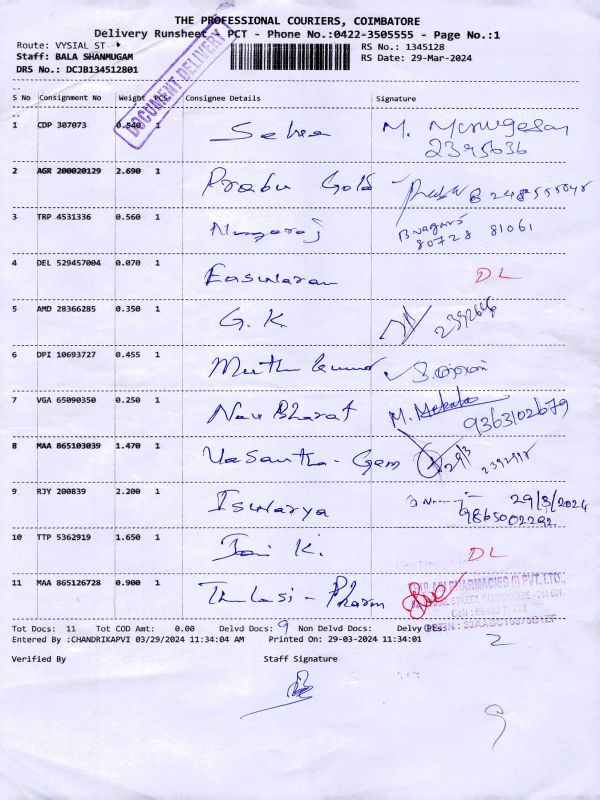 THE PROFESSIONAL COURIERS, COIMBATORE
Delivery Runsheet - PCT - Phone No.:0422-3505555 - Page No.:1
Route: VYSIAL ST
RS No.: 1345128
Staff: BALA SHANMUGAM
RS Date: 29-Mar-2024
DRS No.: DCJB134512801
DOCUMENT DELIVERY
S No Consignment No Weight PCS Consignee Details Signature
1 CDP 307073 0.540 1 M. Murugesan
2395636
2 AGR 200020129 2.690 1 Prabu Gold
3 TRP 4531336 0.560 1 Nungaraj
80728 81061
4 DEL 529457004 0.070 1 Easwaran DL
5 AMD 28366285 0.350 1 G. K.
6 DPI 10693727 0.455 1 Muthu kumar
7 VGA 65090350 0.250 1 Nava Bharat M. 9363102679
8 MAA 865103039 1.470 1 Vasantha - Gem 29/3
9 RJY 200839 2.200 1 Iswarya 29/3/2024
9865002292
10 TTP 5362919 1.650 1 K. DL
11 MAA 865126728 0.900 1 Thulasi - Pharm
PHARMACIES (I) PVT. LTD.,
Tot Docs: 11 Tot COD Amt: 0.00 Delvd Docs: 9 Non Delvd Docs: 2
Entered By :CHANDRIKAPVI 03/29/2024 11:34:04 AM Printed On: 29-03-2024 11:34:01
Verified By Staff Signature
9